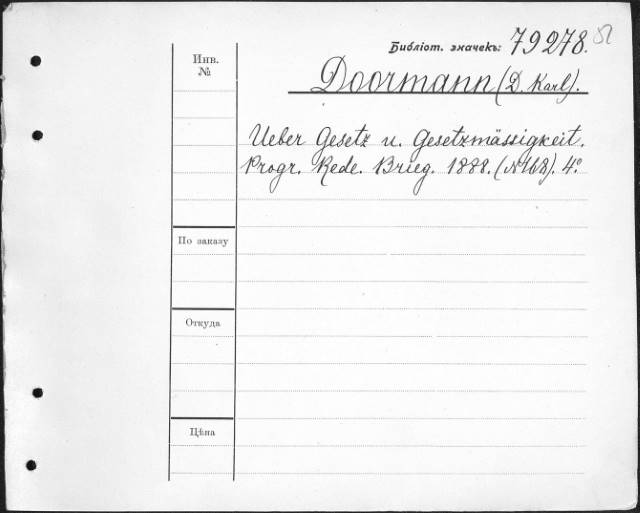 Библіот. значекъ: 79278.
Инв.
№
Doormann (D. Karl).
Ueber Gesetz u. Gesetzmässigkeit.
Progr. Rede. Brieg. 1888. (№168). 4º
По заказу
Откуда
Цѣна